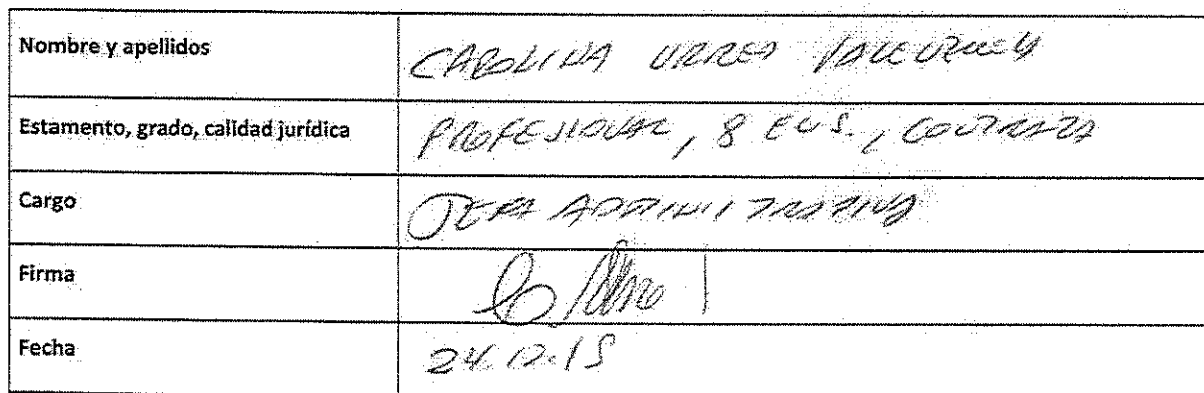 Nombre y apellidos CAROLINA URREA VALENZUELA
Estamento, grado, calidad jurídica PROFESIONAL, 8 EUS., CONTRATA
Cargo JEFA ADMINISTRATIVA
Firma
Fecha 24.12.15